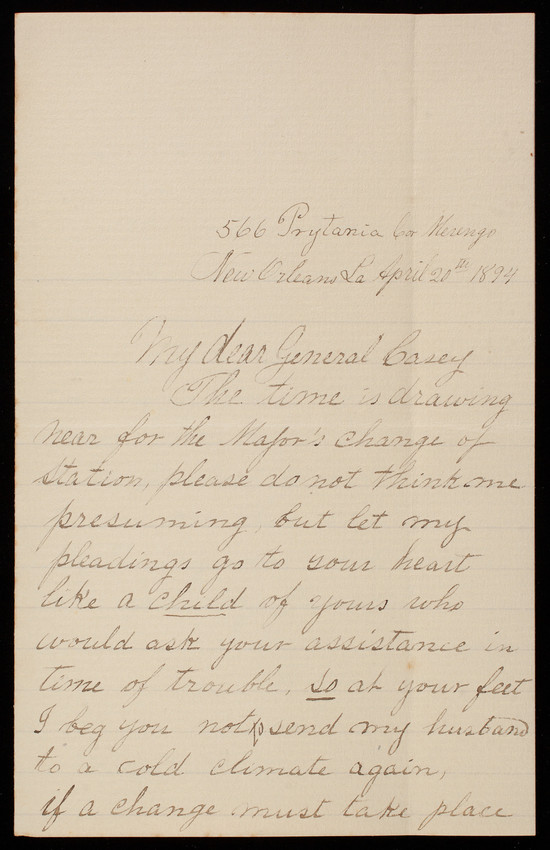 566 Prytania Cor
New Orleans La April 20th 1894
My dear General Casey
The time is drawing
near for the Major's change of
Station, please do not think me
presuming, but let my
pleadings go to your heart
like a child of yours who
would ask your assistance in
time of trouble, so at your feet
I beg you not to send my husband
to a cold climate again,
if a change must take place